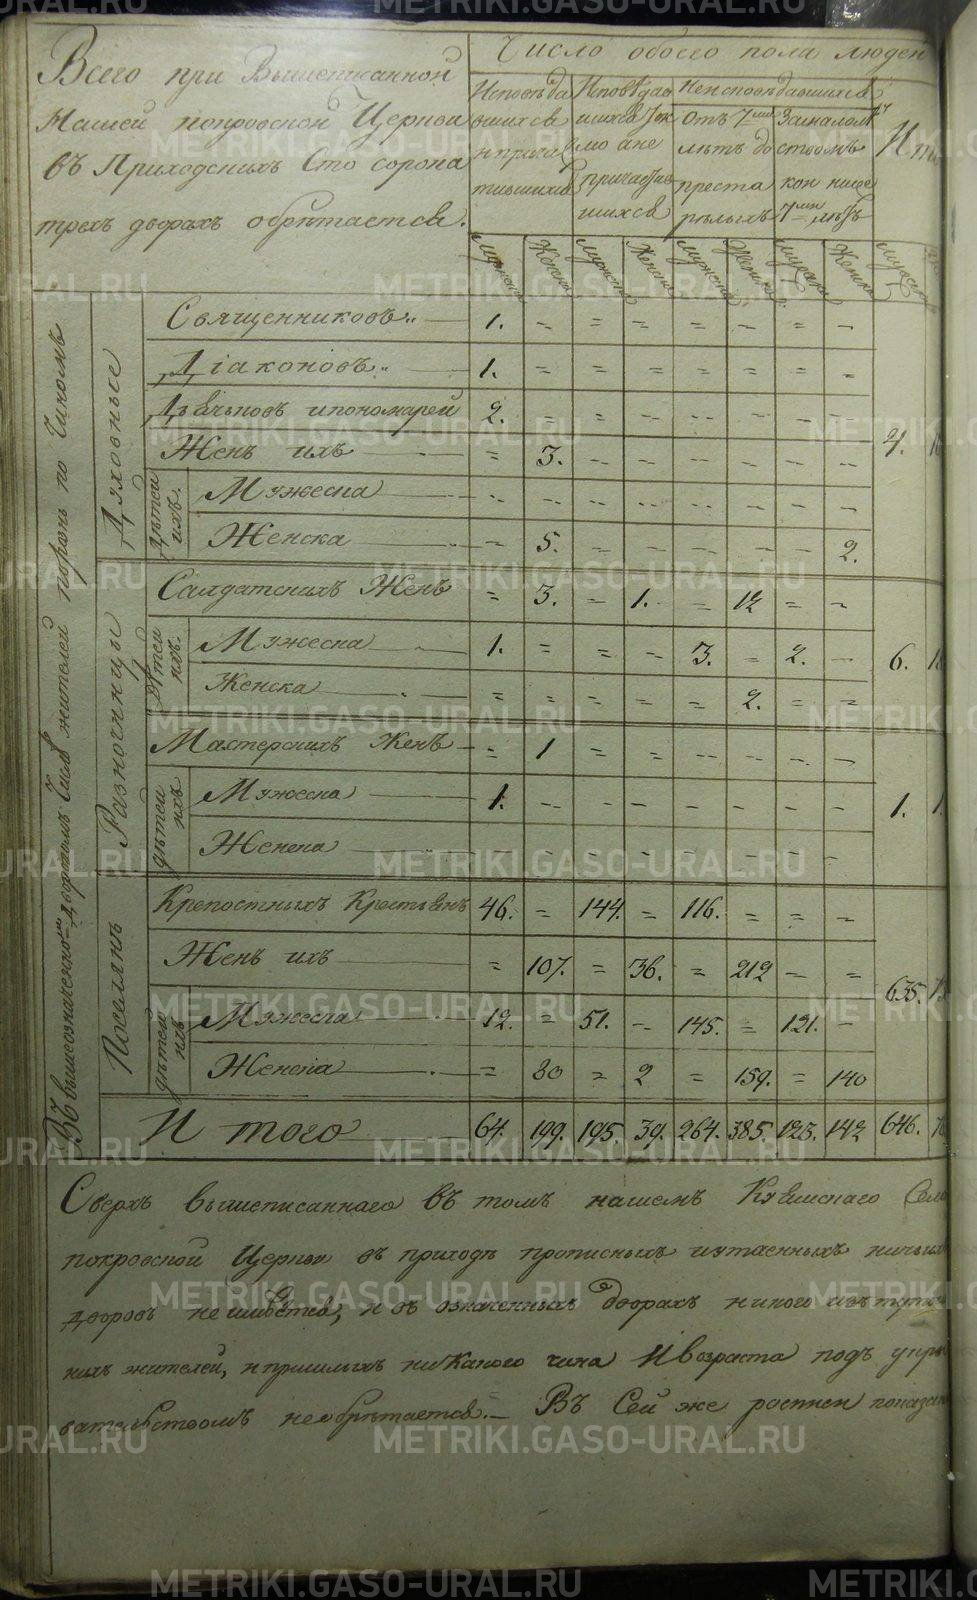 Всего при Вышеписанной
Нашей покровской Церкви
въ Приходскихъ Сто сорока
трехъ дворахъ обрѣтается.
Число обоего пола людей
Исповѣдавшихся и причастившихся
Исповѣдавшихся токмо а не причастившихся
Неисповѣдавшихся
Отъ 7ми лѣтъ до престарѣлыхъ
За малолѣтствомъ кои ниже 7ми лѣтъ
Мужеска Женска Мужеска Женска Мужеска Женска Мужеска Женска Мужеска
Въ вышеозначенномъ дворовомъ числѣ жителей порознь по Чиномъ
Духовныя
Священниковъ 1. = = = = = = =
Діаконовъ 1. = = = = = = =
Дьячковъ и пономарей 2. = = = = = = =
4.
Женъ ихъ = 3. = = = = = =
дѣтей ихъ
Мужеска = = = = = = = =
Женска = 5. = = = = = 2.
Разночинцы
Салдатскихъ Женъ = 3. = 1. = 12 = =
дѣтей ихъ
Мужеска 1. = = = 3. = 2. =
6.
Женска = = = = = 2. = =
Мастерскихъ Женъ = 1 = = = = = =
дѣтей ихъ
Мужеска 1. = = = = = = =
1.
Женска = = = = = = =
Поселянъ
Крепостныхъ Крестьянъ 46. = 144. = 116. = = =
Женъ ихъ = 107. = 36. = 212 = =
635.
дѣтей ихъ
Мужеска 12. = 51. = 145. = 121. =
Женска = 80 = 2 = 159. = 140
Итого 64. 199. 195. 39. 264. 385. 123. 142 646.
Сверхъ вышеписаннаго въ томъ нашемъ
покровской Церкви въ приходѣ прописныхъ и утаенныхъ ничьихъ
дворовъ не имѣется, и въ означенныхъ дворахъ никого изъ
нихъ жителей, и пришлыхъ никакого чина и возраста подъ укры
вательствомъ необрѣтается. Въ Сей же росписи показан
METRIKI.GASO-URAL.RU